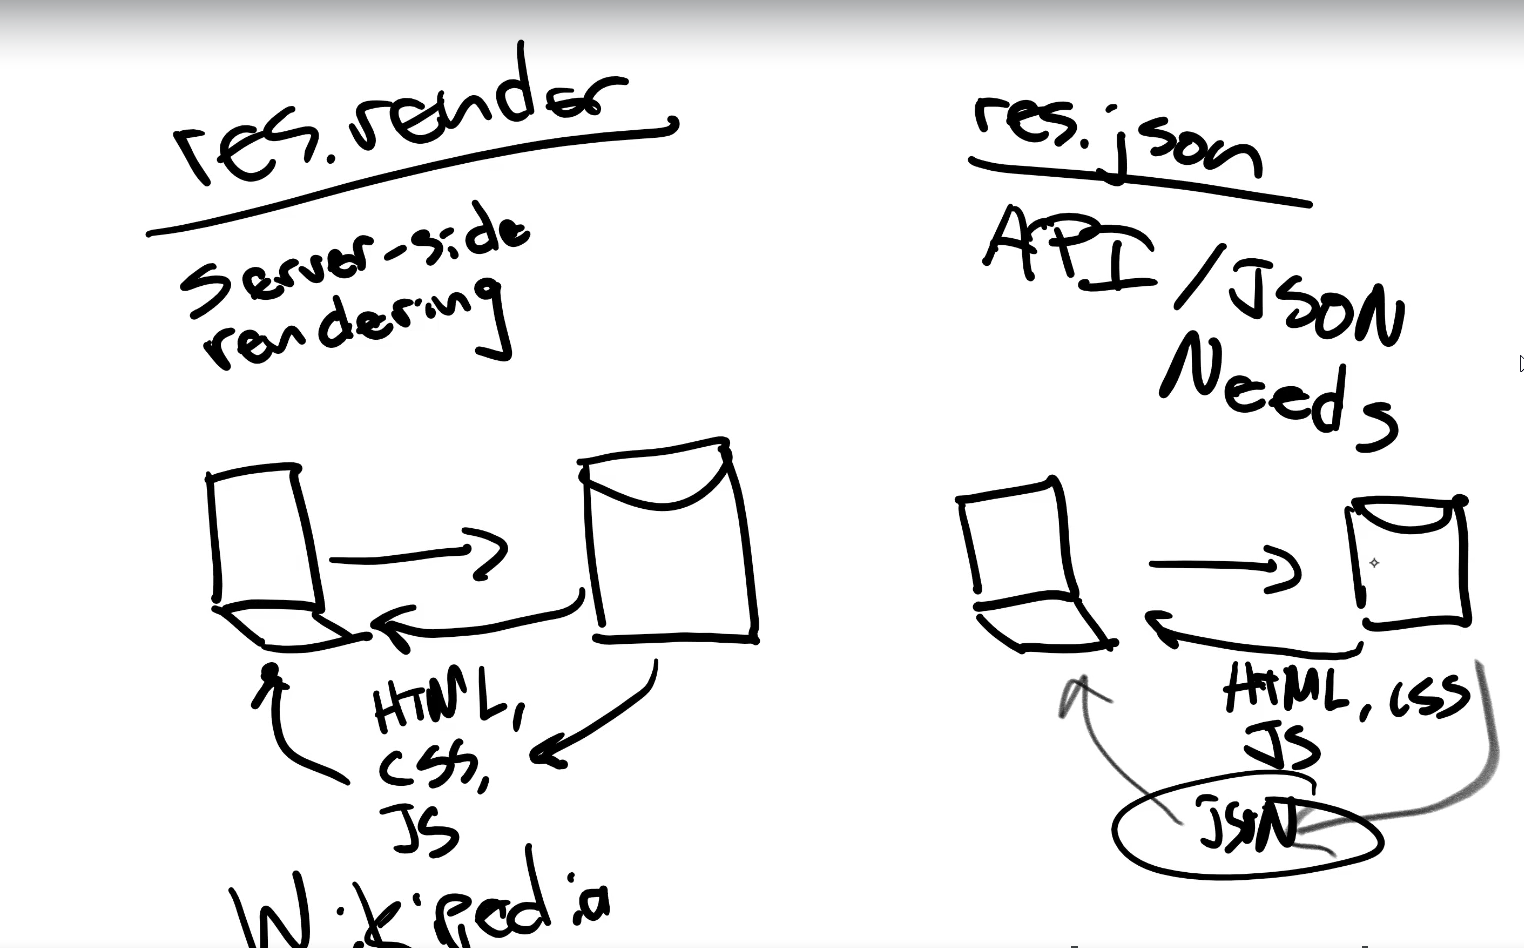 res.render
server-side
rendering
HTML,
CSS,
JS
Wikipedia
res.json
API/JSON
Needs
HTML, CSS
JS
JSON